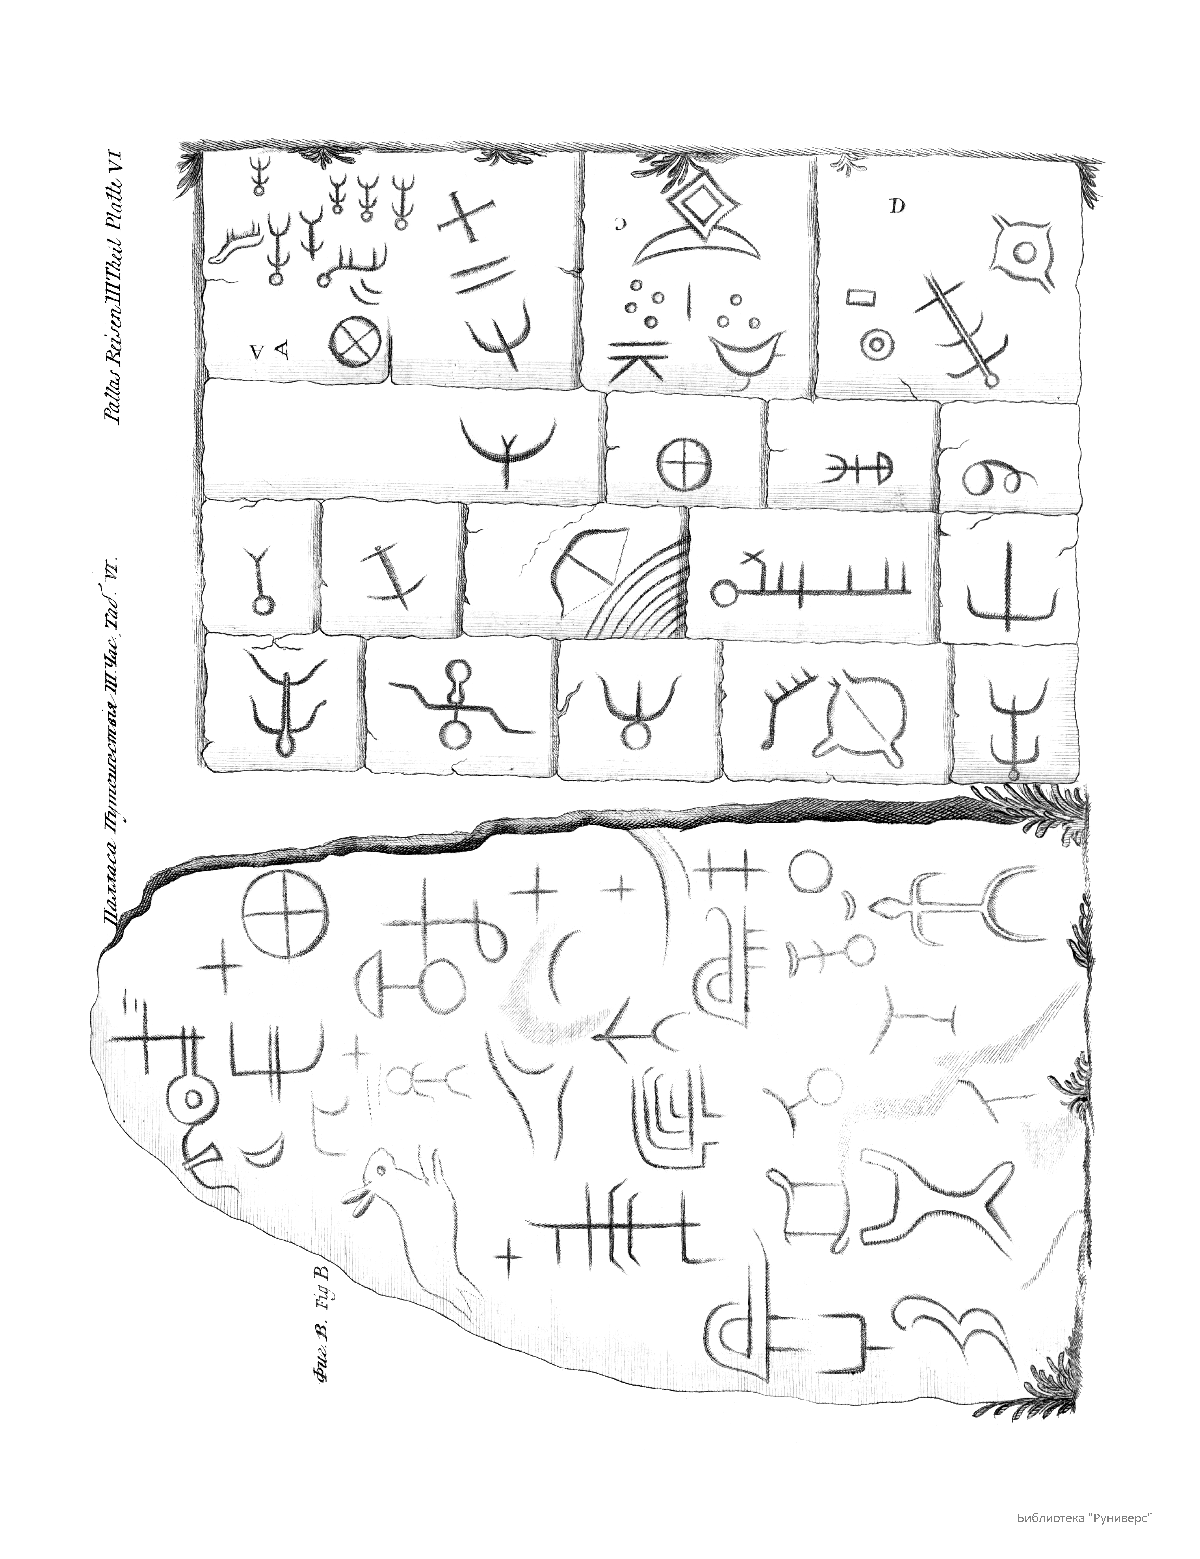 Pallas Reisen III Theil Platte VI
Палласа Путешествія III Час. Таб. VI.
V A
Ɔ
D
Фиг. B. Fig B
Библиотека "Руниверс"